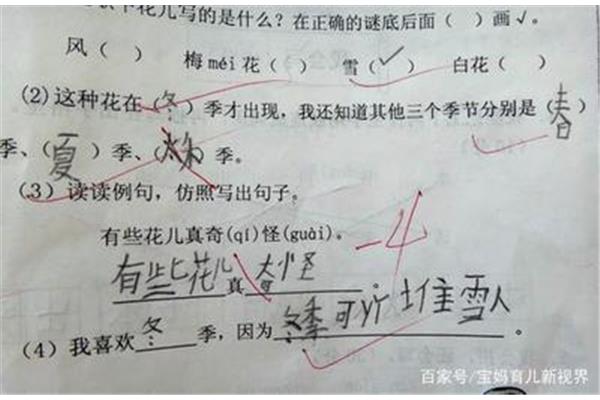 以下花儿写的是什么？在正确的谜底后面（ ）画√。
风（ ） 梅méi花（ ） 雪（√） 白花（ ）
(2)这种花在（冬）季才出现，我还知道其他三个季节分别是（春）
季、（夏）季、（秋）季。
(3) 读读例句，仿照写出句子。
有些花儿真奇(qí)怪(guài)。
-4
有些花儿真奇怪。
(4) 我喜欢冬季，因为冬季可以堆雪人。
百家号/宝妈育儿新视界